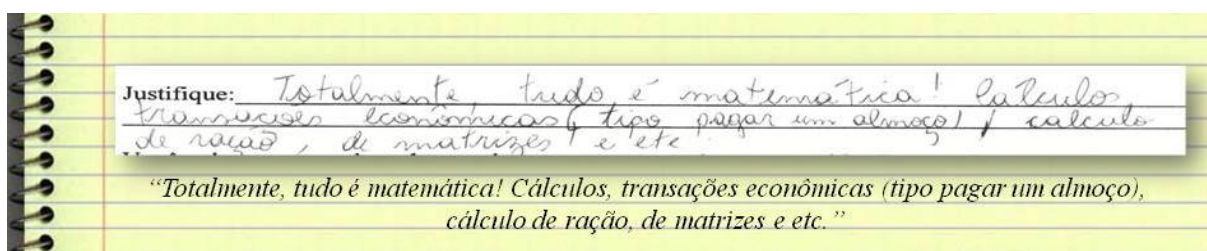 Justifique: Totalmente, tudo é matemática! Calculos,
transacões econômicas (tipo pagar um almoço), calculo
de ração, de matrizes e etc.
“Totalmente, tudo é matemática! Cálculos, transações econômicas (tipo pagar um almoço),
cálculo de ração, de matrizes e etc.”